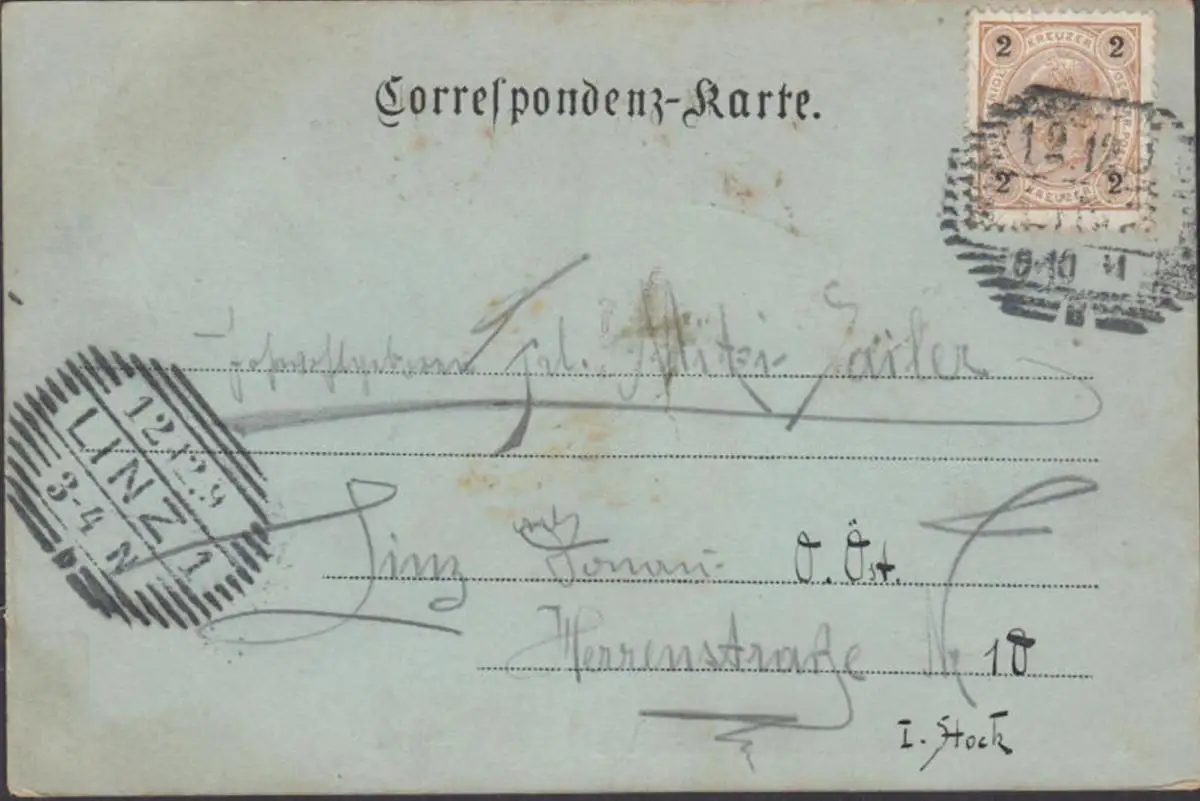 Correspondenz-Karte.
2 KREUZER 2
2 KREUZER 2
12.12
8-10
Frl. Mitzi Sailer
12.12.9
LINZ 1
3-4 N
Linz Donau O. Öst.
Herrenstraße Nr 18
I. Stock